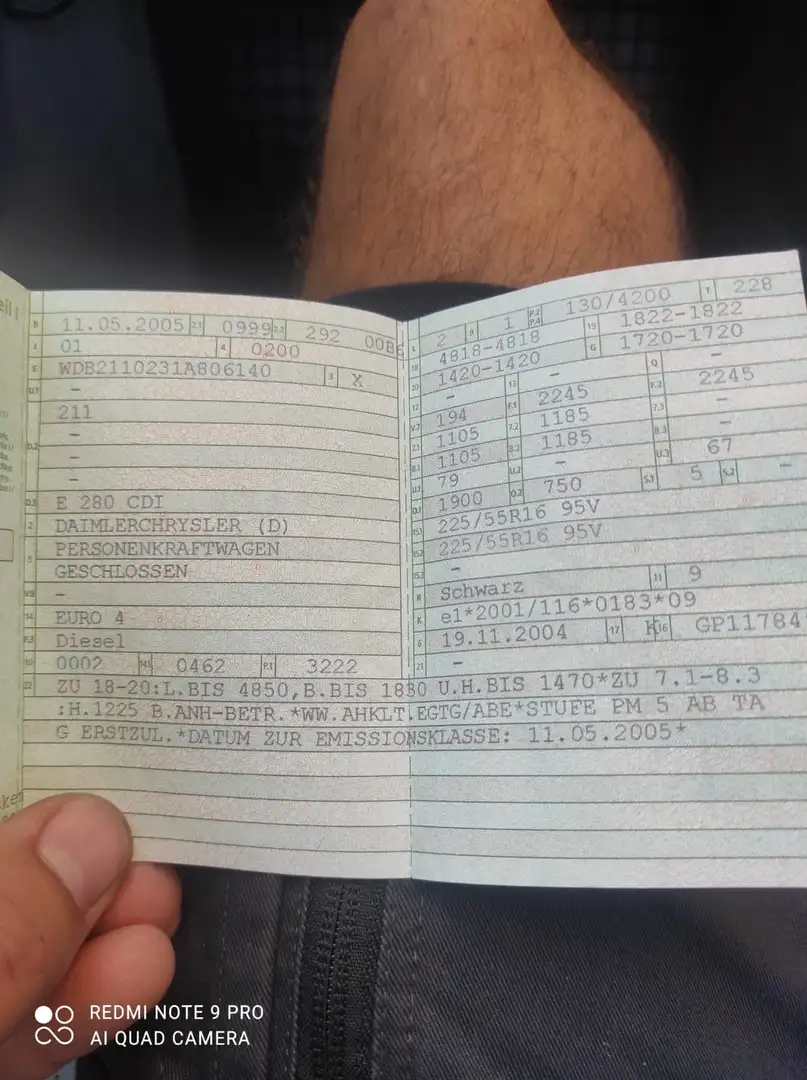 B 11.05.2005 2.1 0999 2.2 292 00B6
J 01 4 0200
E WDB2110231A806140 3 X
D.1 –
211
–
D.2 –
–
D.3 E 280 CDI
2 DAIMLERCHRYSLER (D)
5 PERSONENKRAFTWAGEN
GESCHLOSSEN
V.9 –
14 EURO 4
P.3 Diesel
10 0002 14.1 0462 P.1 3222
L 2 9 1 P.2 P.4 130/4200 T 228
18 4818-4818 19 1822-1822
20 1420-1420 G 1720-1720
12 – 13 – Q –
V.7 194 F.1 2245 F.2 2245
7.1 1105 7.2 1185 7.3 –
8.1 1105 8.2 1185 8.3 –
U.1 79 U.2 – U.3 67
O.1 1900 O.2 750 S.1 5 S.2 –
15.1 225/55R16 95V
15.2 225/55R16 95V
15.3 –
R Schwarz 11 9
K e1*2001/116*0183*09
6 19.11.2004 17 K 16 GP11784
21 –
22 ZU 18-20:L.BIS 4850,B.BIS 1880 U.H.BIS 1470*ZU 7.1-8.3
:H.1225 B.ANH-BETR.*WW.AHKLT.EGTG/ABE*STUFE PM 5 AB TA
G ERSTZUL.*DATUM ZUR EMISSIONSKLASSE: 11.05.2005*
REDMI NOTE 9 PRO
AI QUAD CAMERA